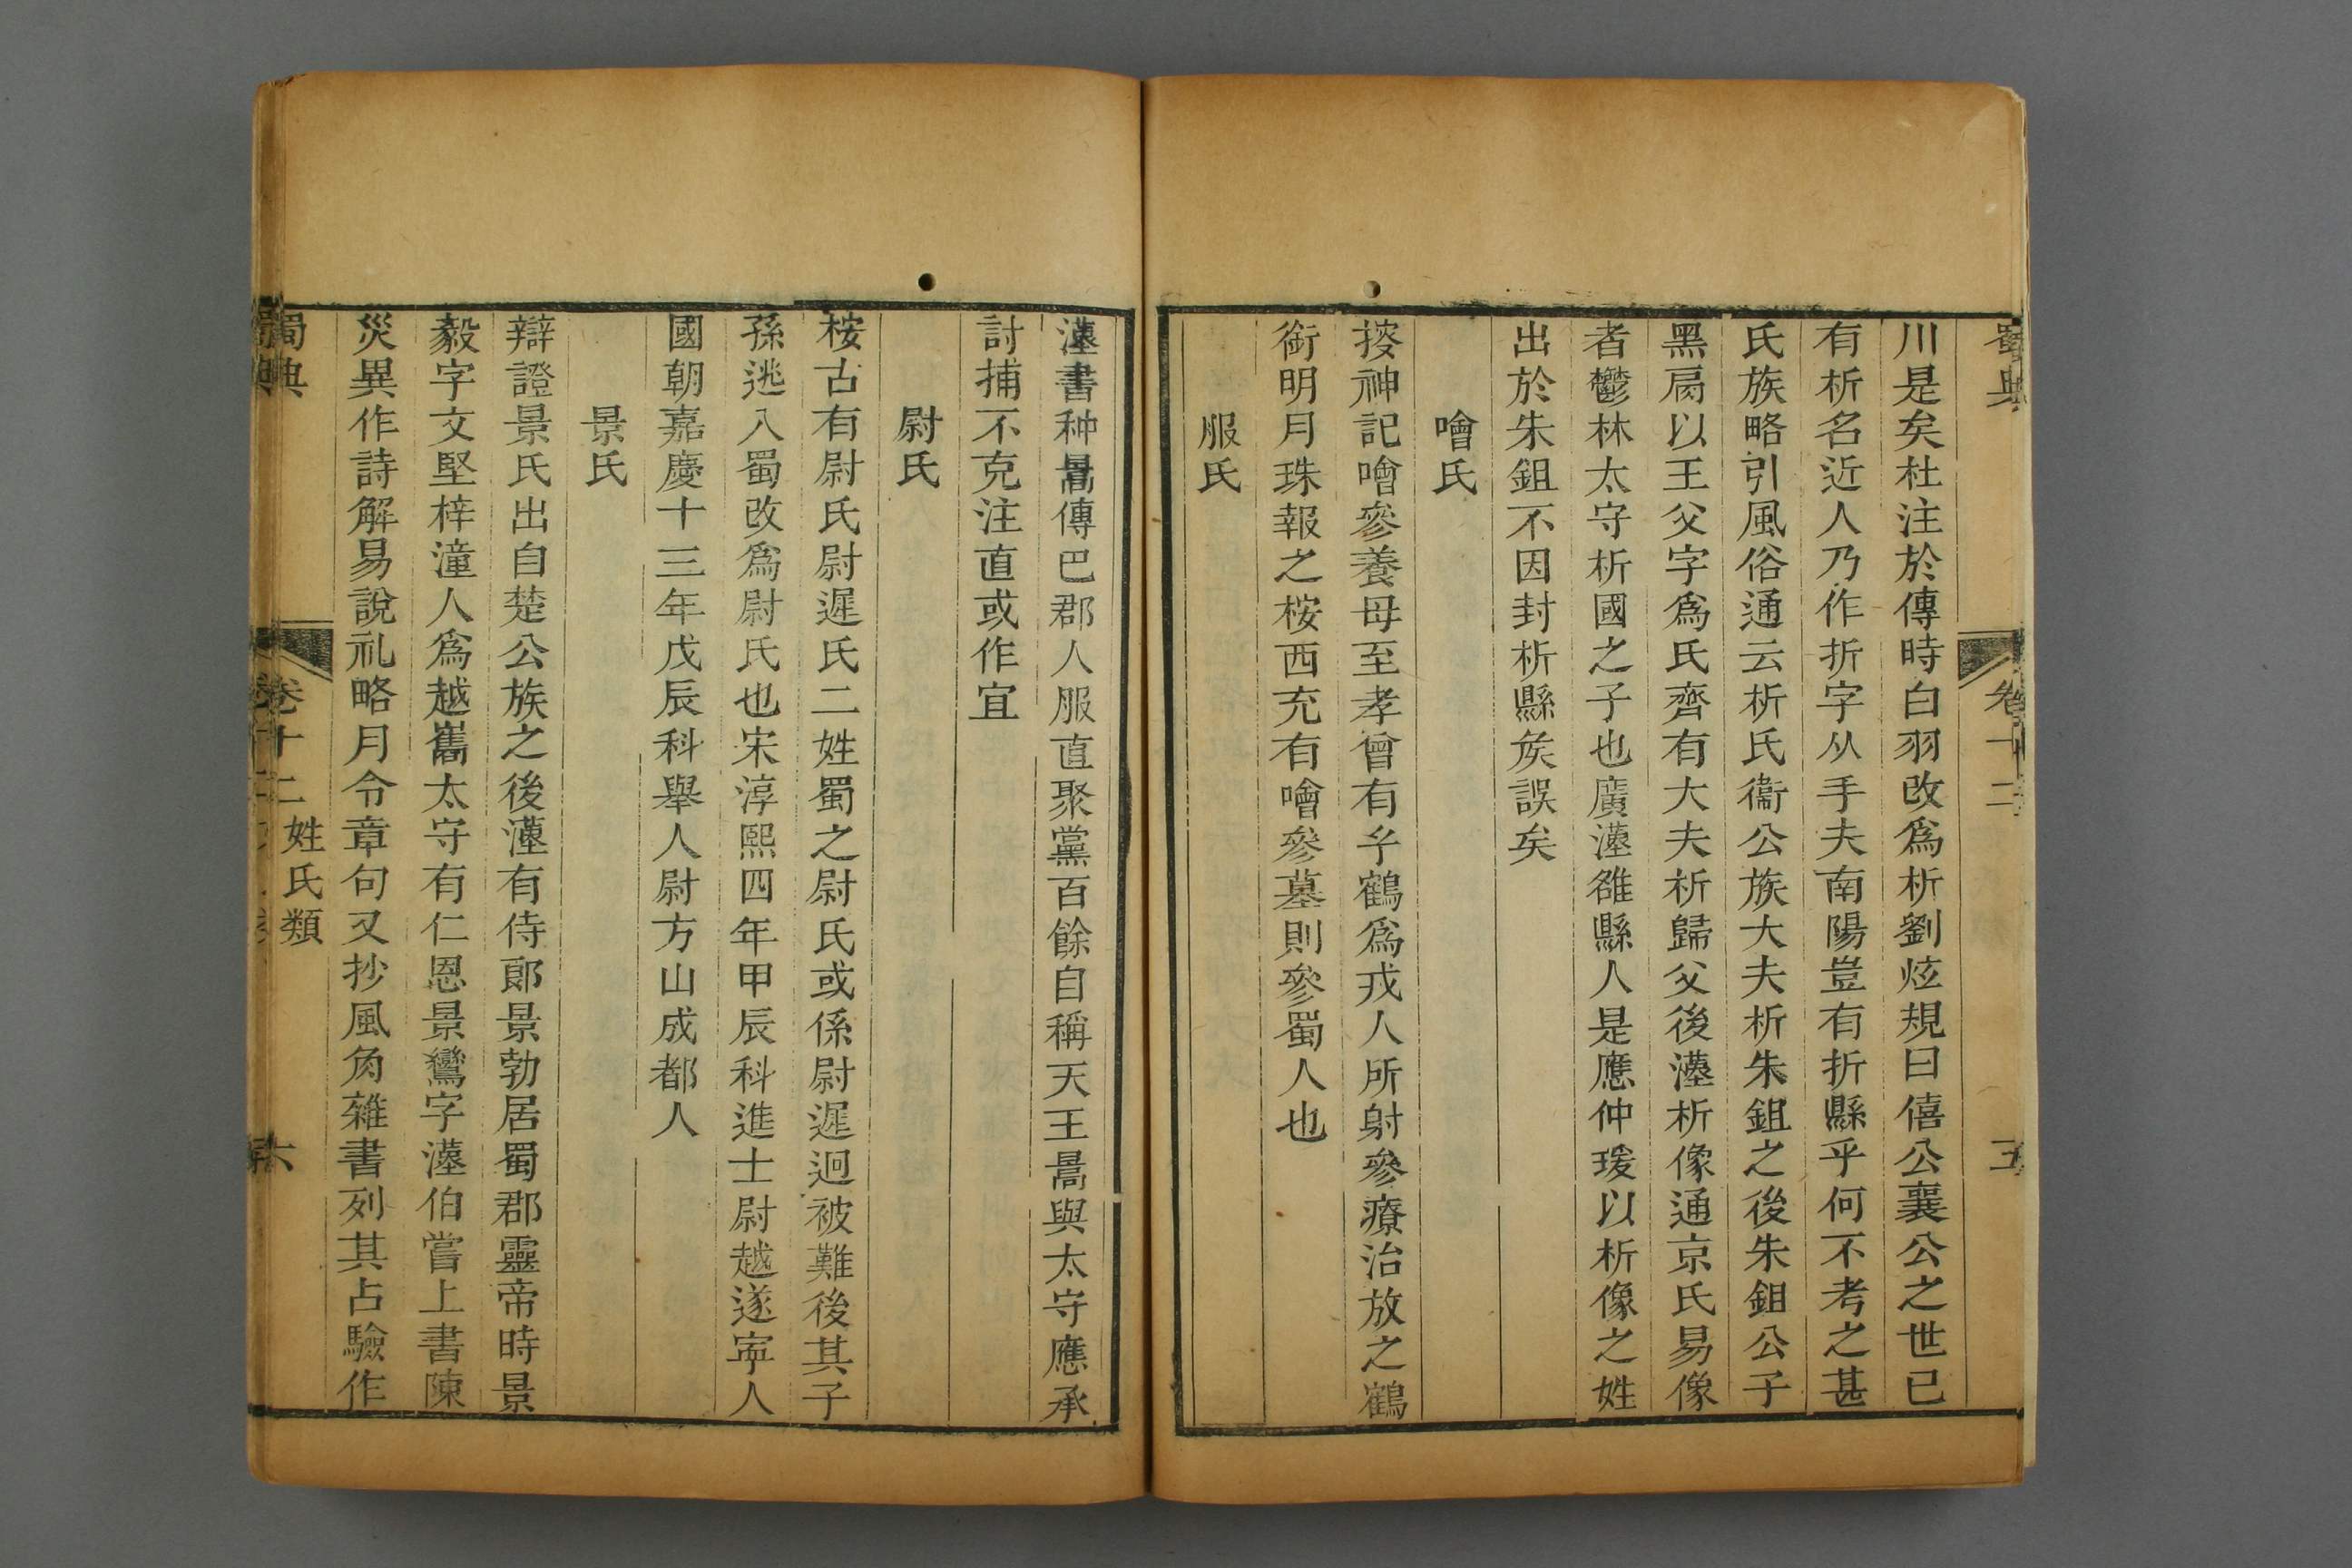 蜀典
卷十二
五
川是矣杜注於傳時白羽改爲析劉炫規曰僖公襄公之世已
有析名近人乃作折字从手夫南陽豈有折縣乎何不考之甚
氏族略引風俗通云析氏衞公族大夫析朱鉏之後朱鉏公子
黑肩以王父字爲氏齊有大夫析歸父後漢析像通京氏易像
者鬱林太守析國之子也廣漢雒縣人是應仲瑗以析像之姓
出於朱鉏不因封析縣矦誤矣
噲氏
搜神記噲參養母至孝曾有𤣥鶴爲戎人所射參療治放之鶴
銜明月珠報之桉西充有噲參墓則參蜀人也
服氏
漢書种暠傳巴郡人服直聚黨百餘自稱天王暠與太守應承
討捕不克注直或作宜
尉氏
桉古有尉氏尉遲氏二姓蜀之尉氏或係尉遲迥被難後其子
孫逃入蜀改爲尉氏也宋淳熙四年甲辰科進士尉越遂寧人
國朝嘉慶十三年戊辰科舉人尉方山成都人
景氏
辯證景氏出自楚公族之後漢有侍郎景勃居蜀郡靈帝時景
毅字文堅梓潼人爲越巂太守有仁恩景鸞字漢伯嘗上書陳
災異作詩解易說礼略月令章句又抄風角雜書列其占驗作
蜀典
卷十二
姓氏類
六